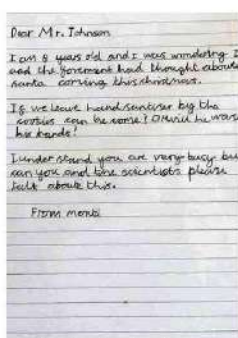 Dear Mr. Johnson
I am 8 years old and I was wondering I
and the had thought about
santa coming this christmas.
If we leave hand sanitiser by the
cookies can he come? Or will he wash
his hands?
I under stand you are very busy but
can you and the scientists please
talk about this.
From